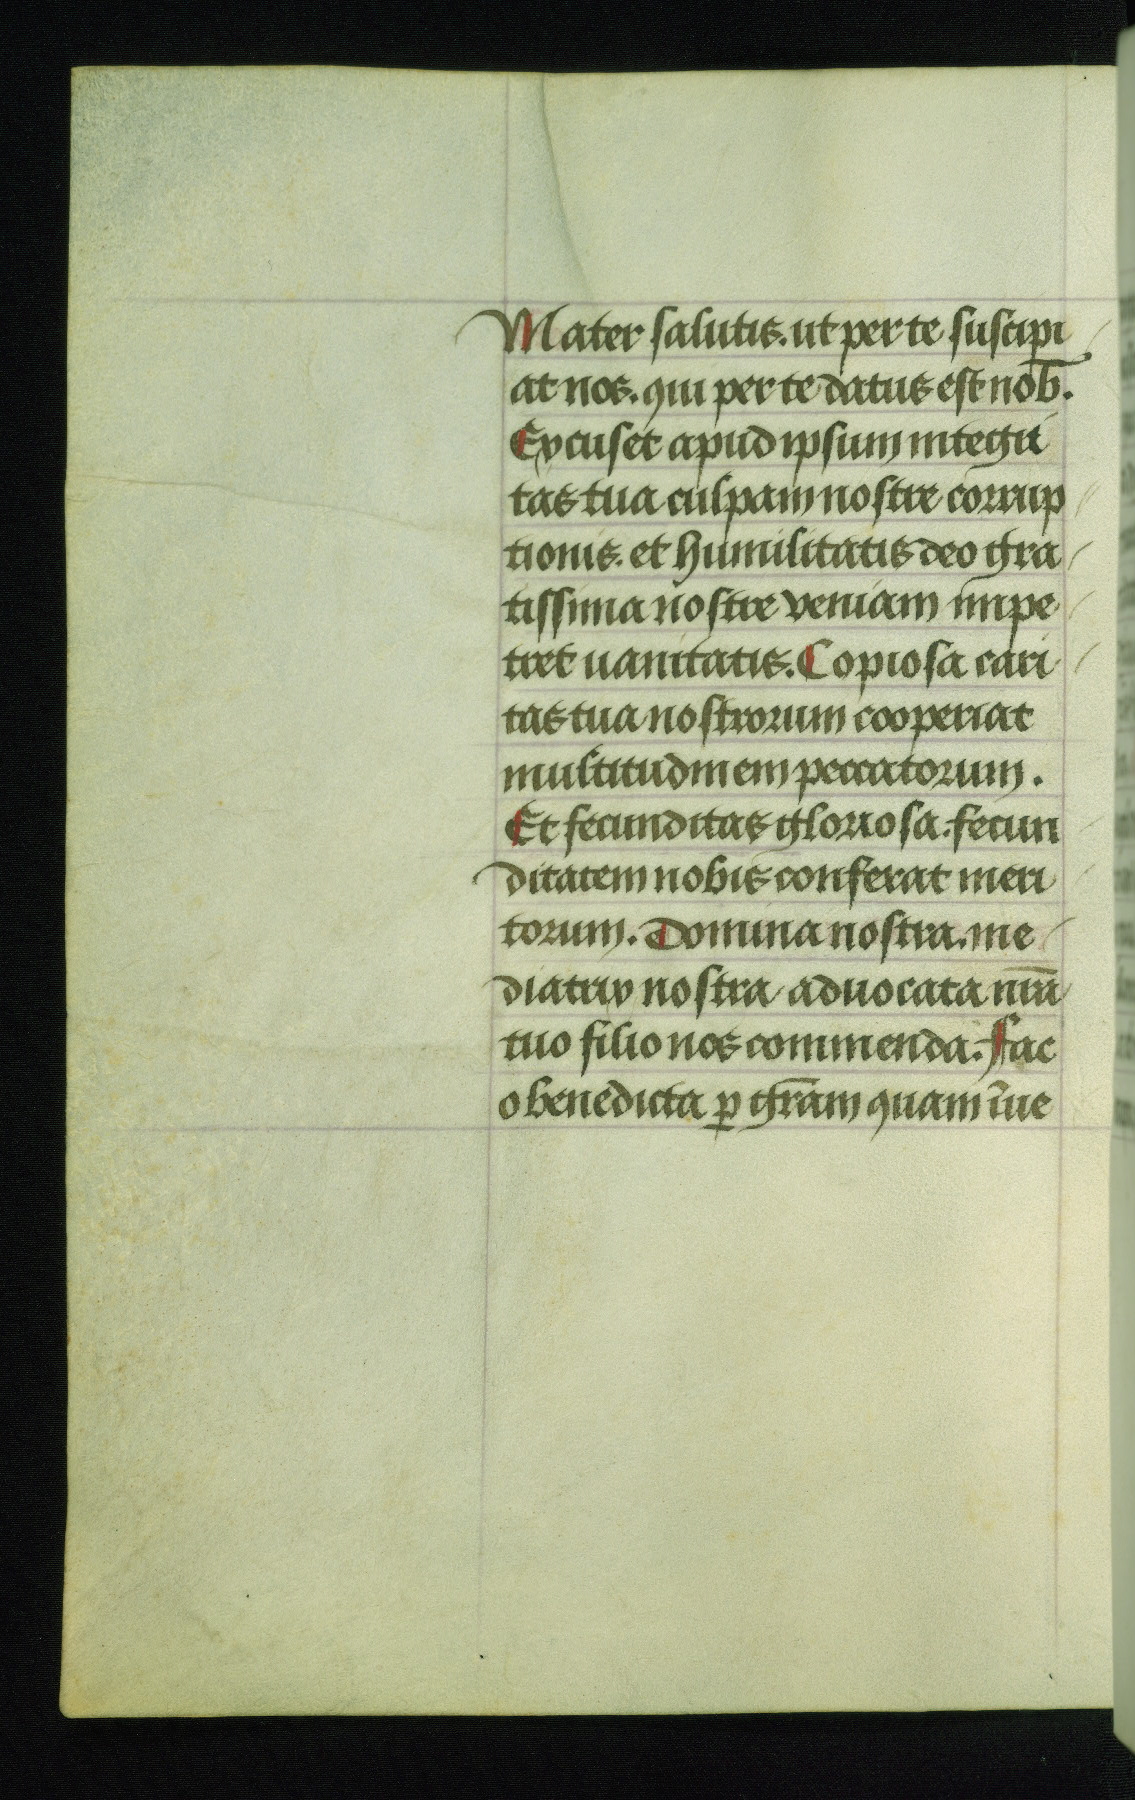 Mater salutis. ut per te suscipi
at nos. qui per te datus est nob̅.
Excuset apud ipsum integri
tas tua culpam nostre corrup
tionis. et humilitatis deo gra
tissima nostre veniam impe
tret uanitatis. Copiosa cari
tas tua nostrorum cooperiat
multitudinem peccatorum.
Et fecunditas gloriosa. fecun
ditatem nobis conferat meri
torum. Domina nostra. me
diatrix nostra aduocata nr̅a
tuo filio nos commenda. Fac
o benedicta ꝑ gr̅am quam i̅ue